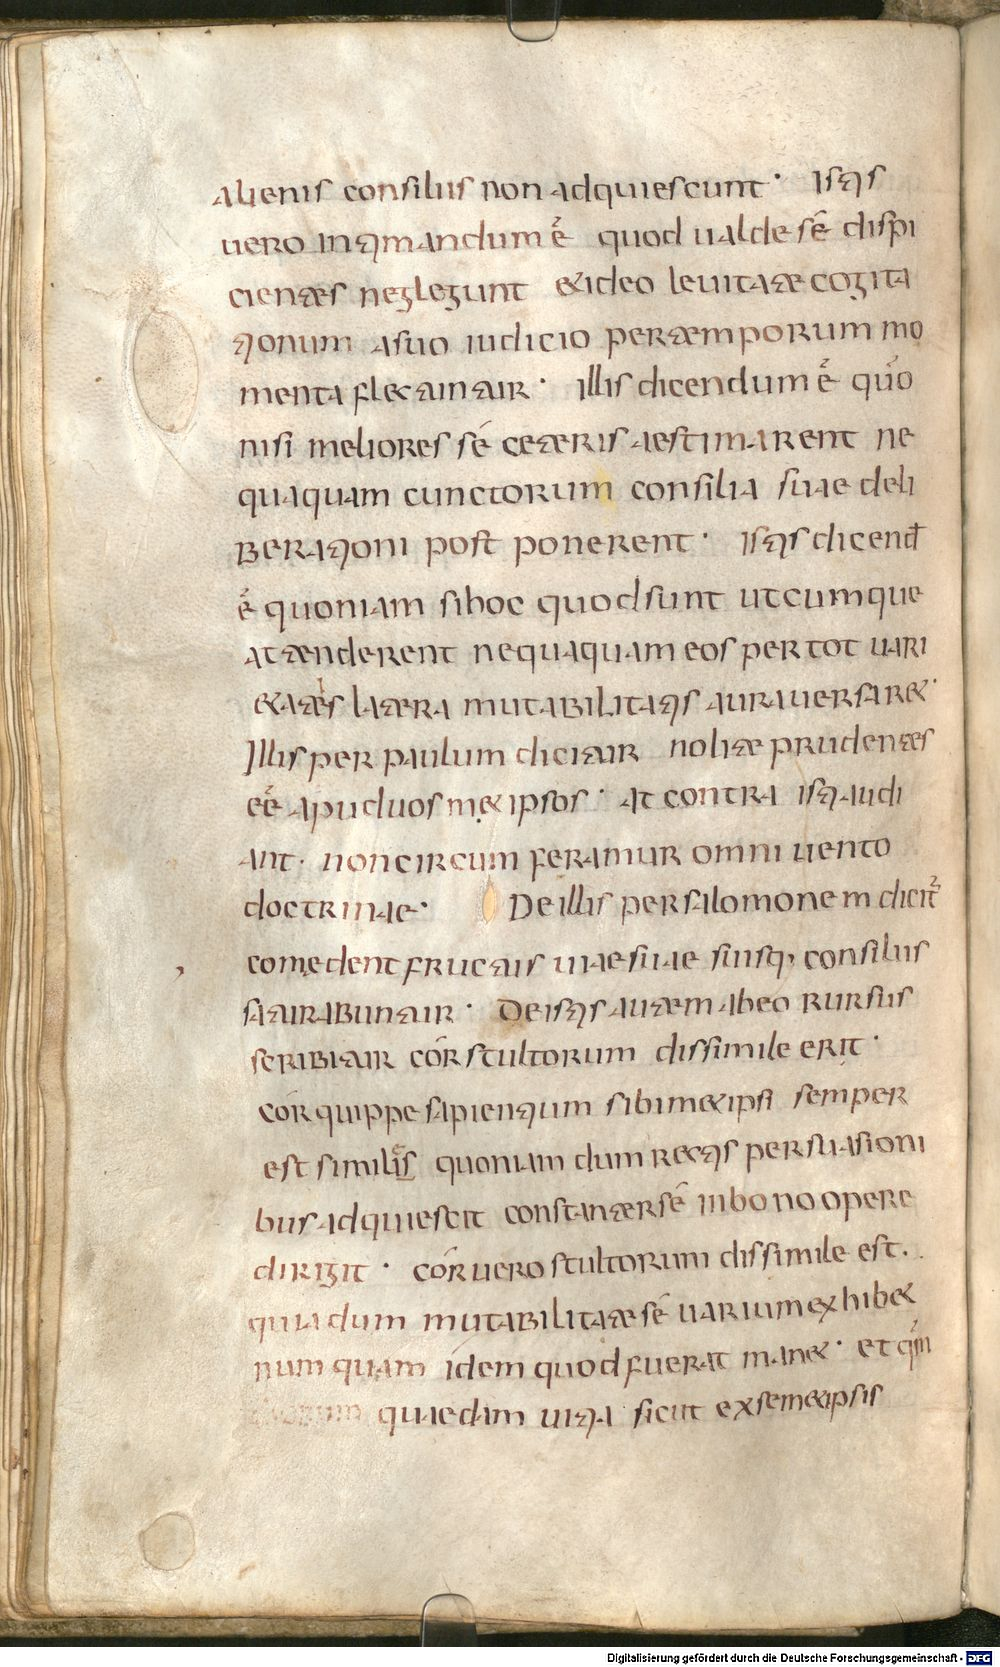 alienis consiliis non adquiescunt · istis
uero intimandum ē quod ualde sē dispi
cientes neglegunt & ideo leuitate cogita
tionum a suo iudicio per temporum mo
menta flectuntur · illis dicendum ē quō
nisi meliores sē ceteris aestimarent ne
quaquam cunctorum consilia suae deli
berationi post ponerent · istis dicend̄
ē quoniam si hoc quod sunt utcumque
attenderent nequaquam eos per tot uari
&ates latera mutabilitatis aura uersar& ·
Illis per paulum dicitur nolite prudentes
eē apud uosm&ipsos · at contra isti audi
ant · non circum feramur omni uento
doctrinae · De illis per salomonem dicit̄
comedent fructus uiae suae suisq; consiliis
saturabuntur · De istis autem ab eo rursus
scribitur cōr stultorum dissimile erit ·
cōr quippe sapientium sibim&ipsi semper
est similis quoniam dum rectis persuasioni
bus adquiescit constanter sē in bono opere
dirigit · cōr uero stultorum dissimile est ·
quia dum mutabilitate sē uarium exhib&
numquam idem quod fuerat man& · et qm̄
quaedam uitia sicut ex sem&ipsis
Digitalisierung gefördert durch die Deutsche Forschungsgemeinschaft - DFG